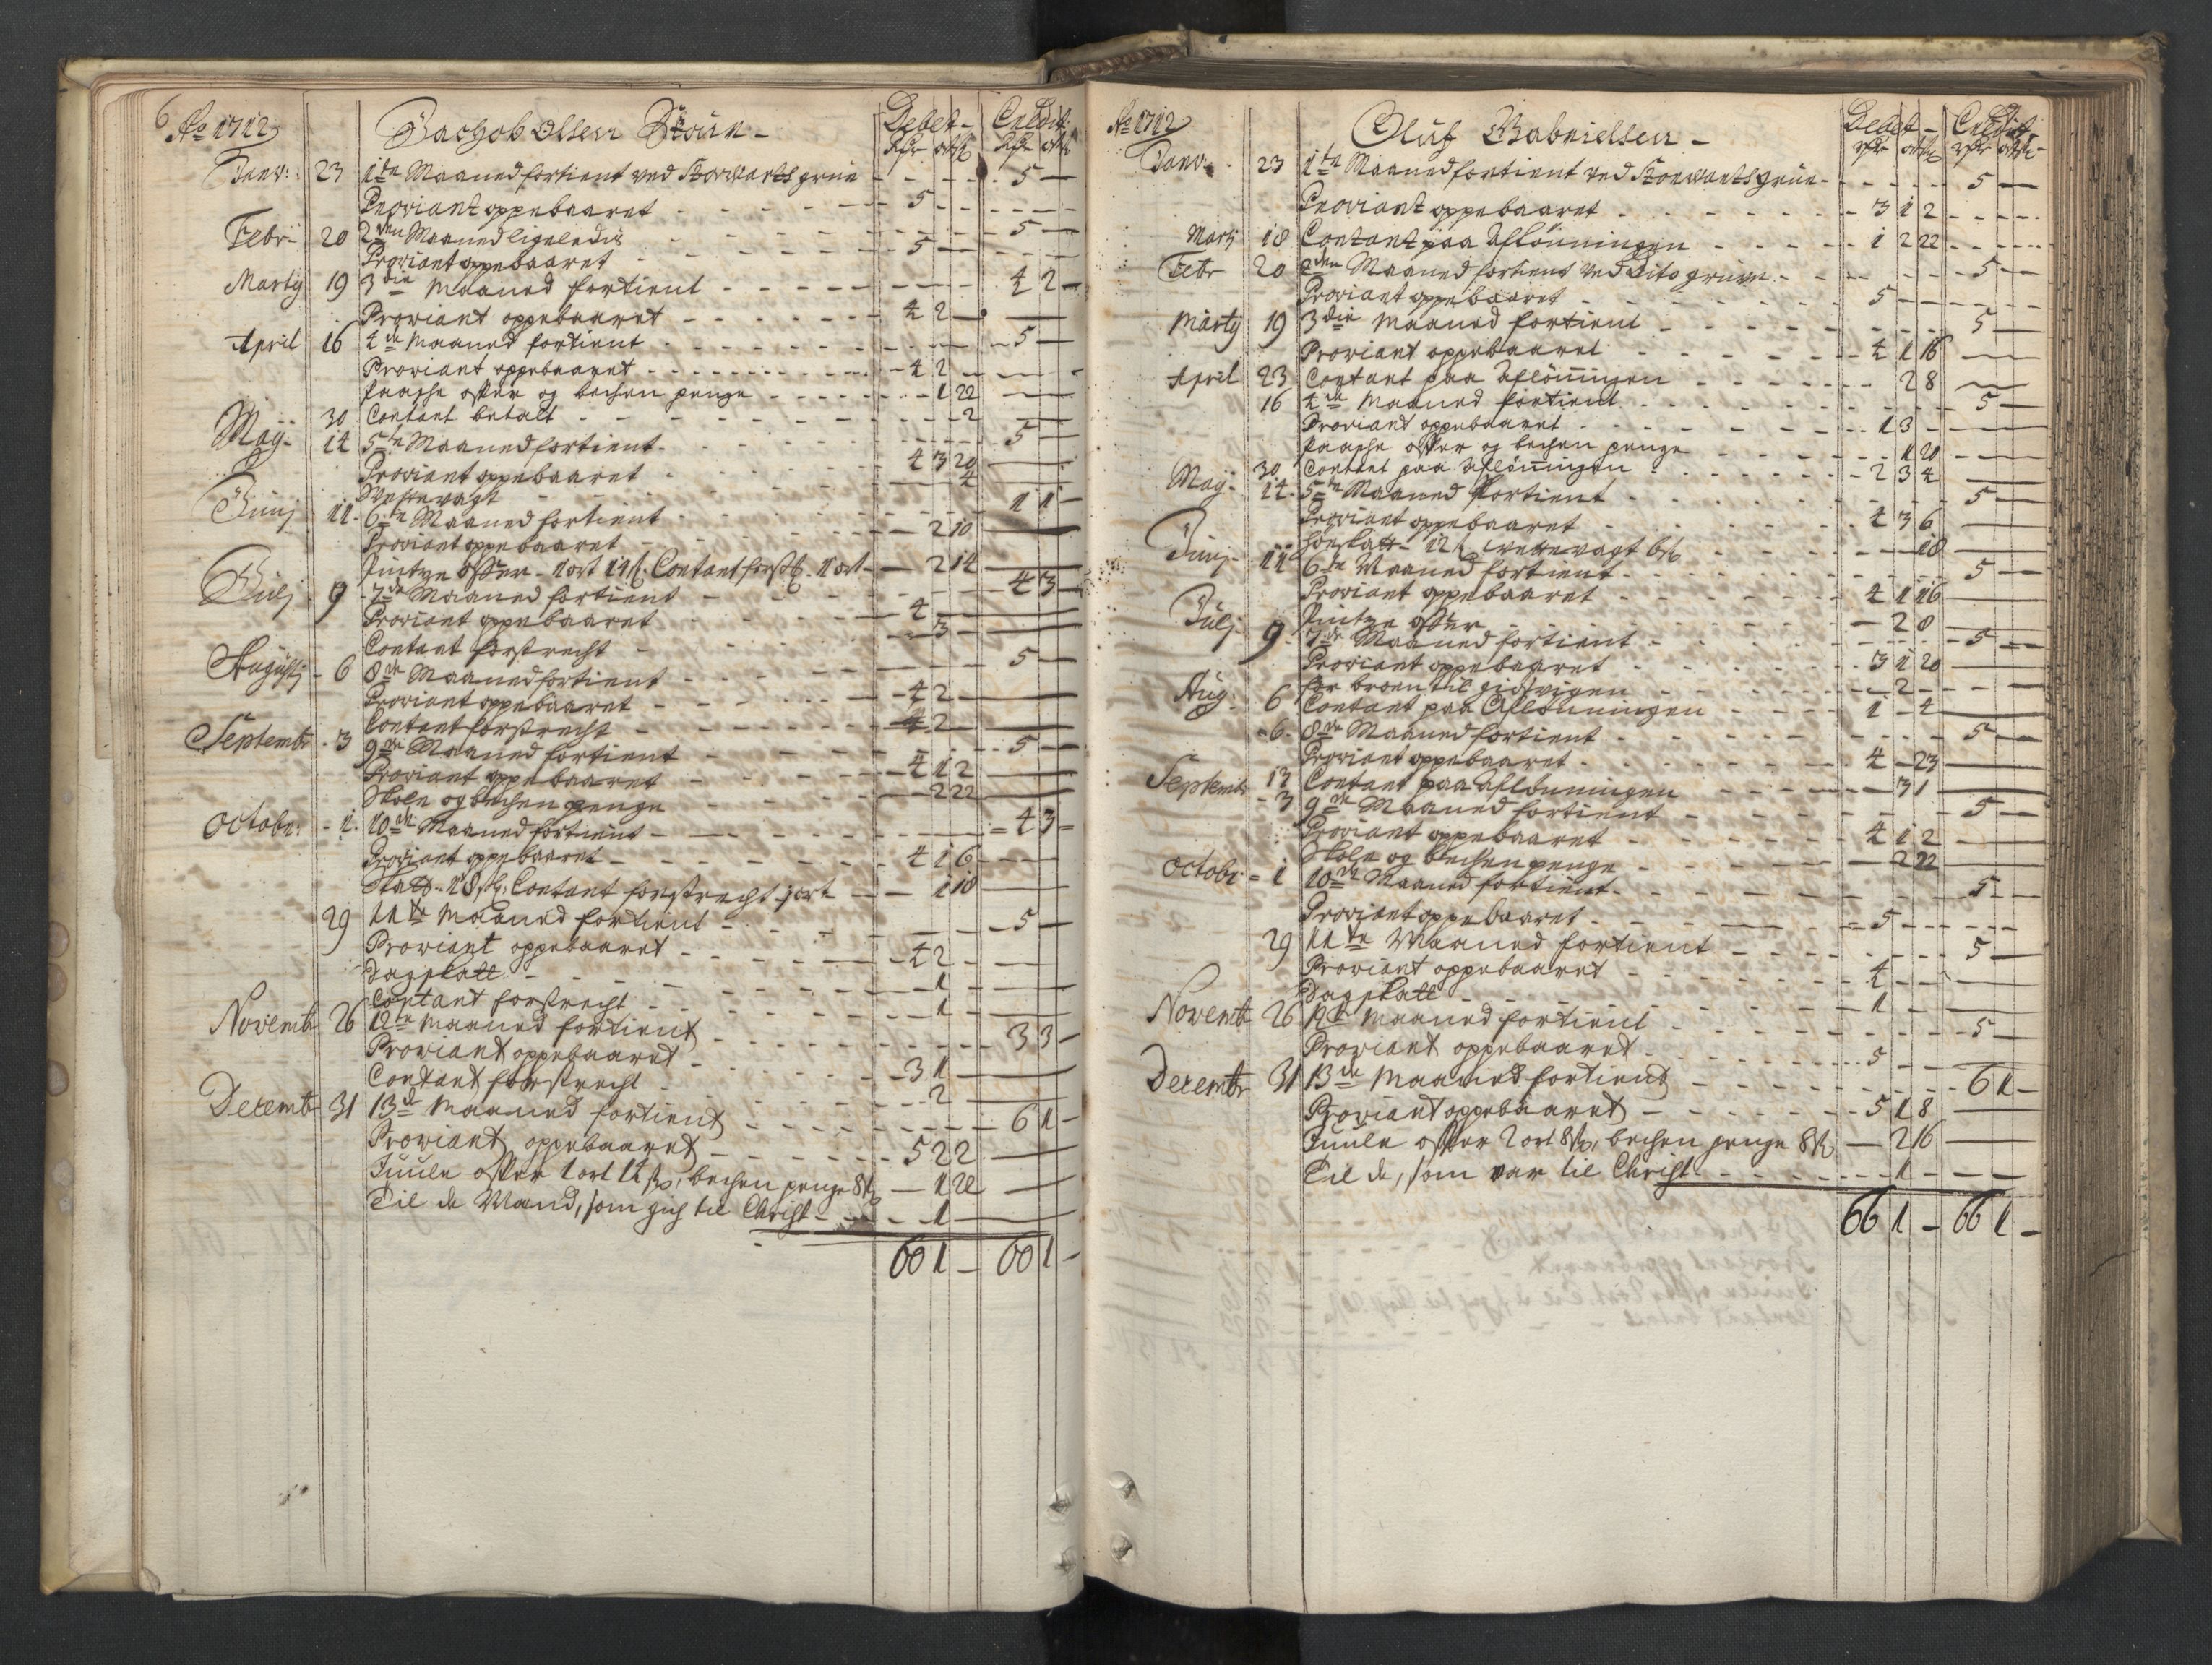 6
Ao 1712
Jachob Olsen
Debet - Credit
Janv: 23 1te Maaned fortient ved Storvarts grue - 5 -
Proviant oppebaaret - 5 - -
Febr 20 2den Maaned ligeledis - 5 -
Proviant oppebaaret - 5 - -
Martij 19 3die Maaned fortient - 4 2 -
Proviant oppebaaret - 4 2 -
April 16 4de Maaned fortient - 5 -
Proviant oppebaaret - 4 2 -
Paasche offer og bechen penge - 1 22
30 Contant betalt - 2
Maij 14 5te Maaned fortient - 5 -
Proviant oppebaaret - 4 3 20
4
Junij 11 6te Maaned fortient - 1 1 -
Proviant oppebaaret - 2 10
Pintze offer - 1 ort 14 s. Contant 1 ort - 2 14
Julj 9 7de Maaned fortient - 4 3 -
Proviant oppebaaret - 4 -
Contant forstrecht - 3 -
Augustj 6 8de Maaned fortient - 5 -
Proviant oppebaaret - 4 2 -
Contant forstrecht - 2 -
Septembr 3 9de Maaned fortient - 5 -
Proviant oppebaaret - 4 1 2
Skole og bechen penge - 2 22
Octobr: 1 10de Maaned fortient - 4 3 -
Proviant oppebaaret - 4 1 6
Skatt 18 s. Contant forstrecht 1 ort - 1 18
29 11te Maaned fortient - 5 -
Proviant oppebaaret - 4 2 -
Dagskatt - 1 -
Contant forstrecht - 1 -
Novembr 26 12te Maaned fortient - 3 3 -
Proviant oppebaaret - 3 1 -
Contant forstrecht - 2 -
Decembr 31 13de Maaned fortient - 6 1 -
Proviant oppebaaret - 5 2 2
Juule offer 1 ort 14 s, bechen penge 8 s - 1 22
Til de Mænd, som gich til Christ - 1 -
60 1 - 60 1 -
Ao 1712
Oluf Gabrielsen -
Debet - Credit
Janv. 23 1te Maaned fortient ved Storvartsgrue - 5 -
Proviant oppebaaret - 3 1 2
Martj 18 Contant paa Aflönningen - 1 2 22
Febr 20 2den Maaned fortient ved dito gruve - 5 -
Proviant oppebaaret - 5 - -
Martij 19 3die Maaned fortient - 5 -
Proviant oppebaaret - 4 1 16
April 23 Contant paa Aflönningen - 2 8
16 4de Maaned fortient - 5 -
Proviant oppebaaret - 1 3 -
Paasche offer og bechen penge - 1 20
30 Contant paa Aflönningen - 2 3 4
Maij 14 5te Maaned fortient - 5 -
Proviant oppebaaret - 4 3 6
12 s. 6 s - 18
Junij 11 6te Maaned fortient - 5 -
Proviant oppebaaret - 4 1 16
Pintze offer - 2 8
Julj 9 7de Maaned fortient - 5 -
Proviant oppebaaret - 3 1 20
for broen til - 2 -
Aug. 6 Contant paa Aflönningen - 1 - 4
6 8de Maaned fortient - 5 -
Proviant oppebaaret - 4 - 23
Septembr 13 Contant paa Aflönningen - 3 1
3 9de Maaned fortient - 5 -
Proviant oppebaaret - 4 1 2
Skole og bechen penge - 2 22
Octobr 1 10de Maaned fortient - 5 -
Proviant oppebaaret - 5 - -
29 11te Maaned fortient - 5 -
Proviant oppebaaret - 4 -
Dagskatt - 1 -
Novembr 26 12te Maaned fortient - 5 -
Proviant oppebaaret - 5 -
Decembr 31 13de Maaned fortient - 6 1 -
Proviant oppebaaret - 5 1 8
Juule offer 2 ort 8 s, bechen penge 8 s - 2 16
Til de, som var til Christ - 1 -
66 1 - 66 1 -